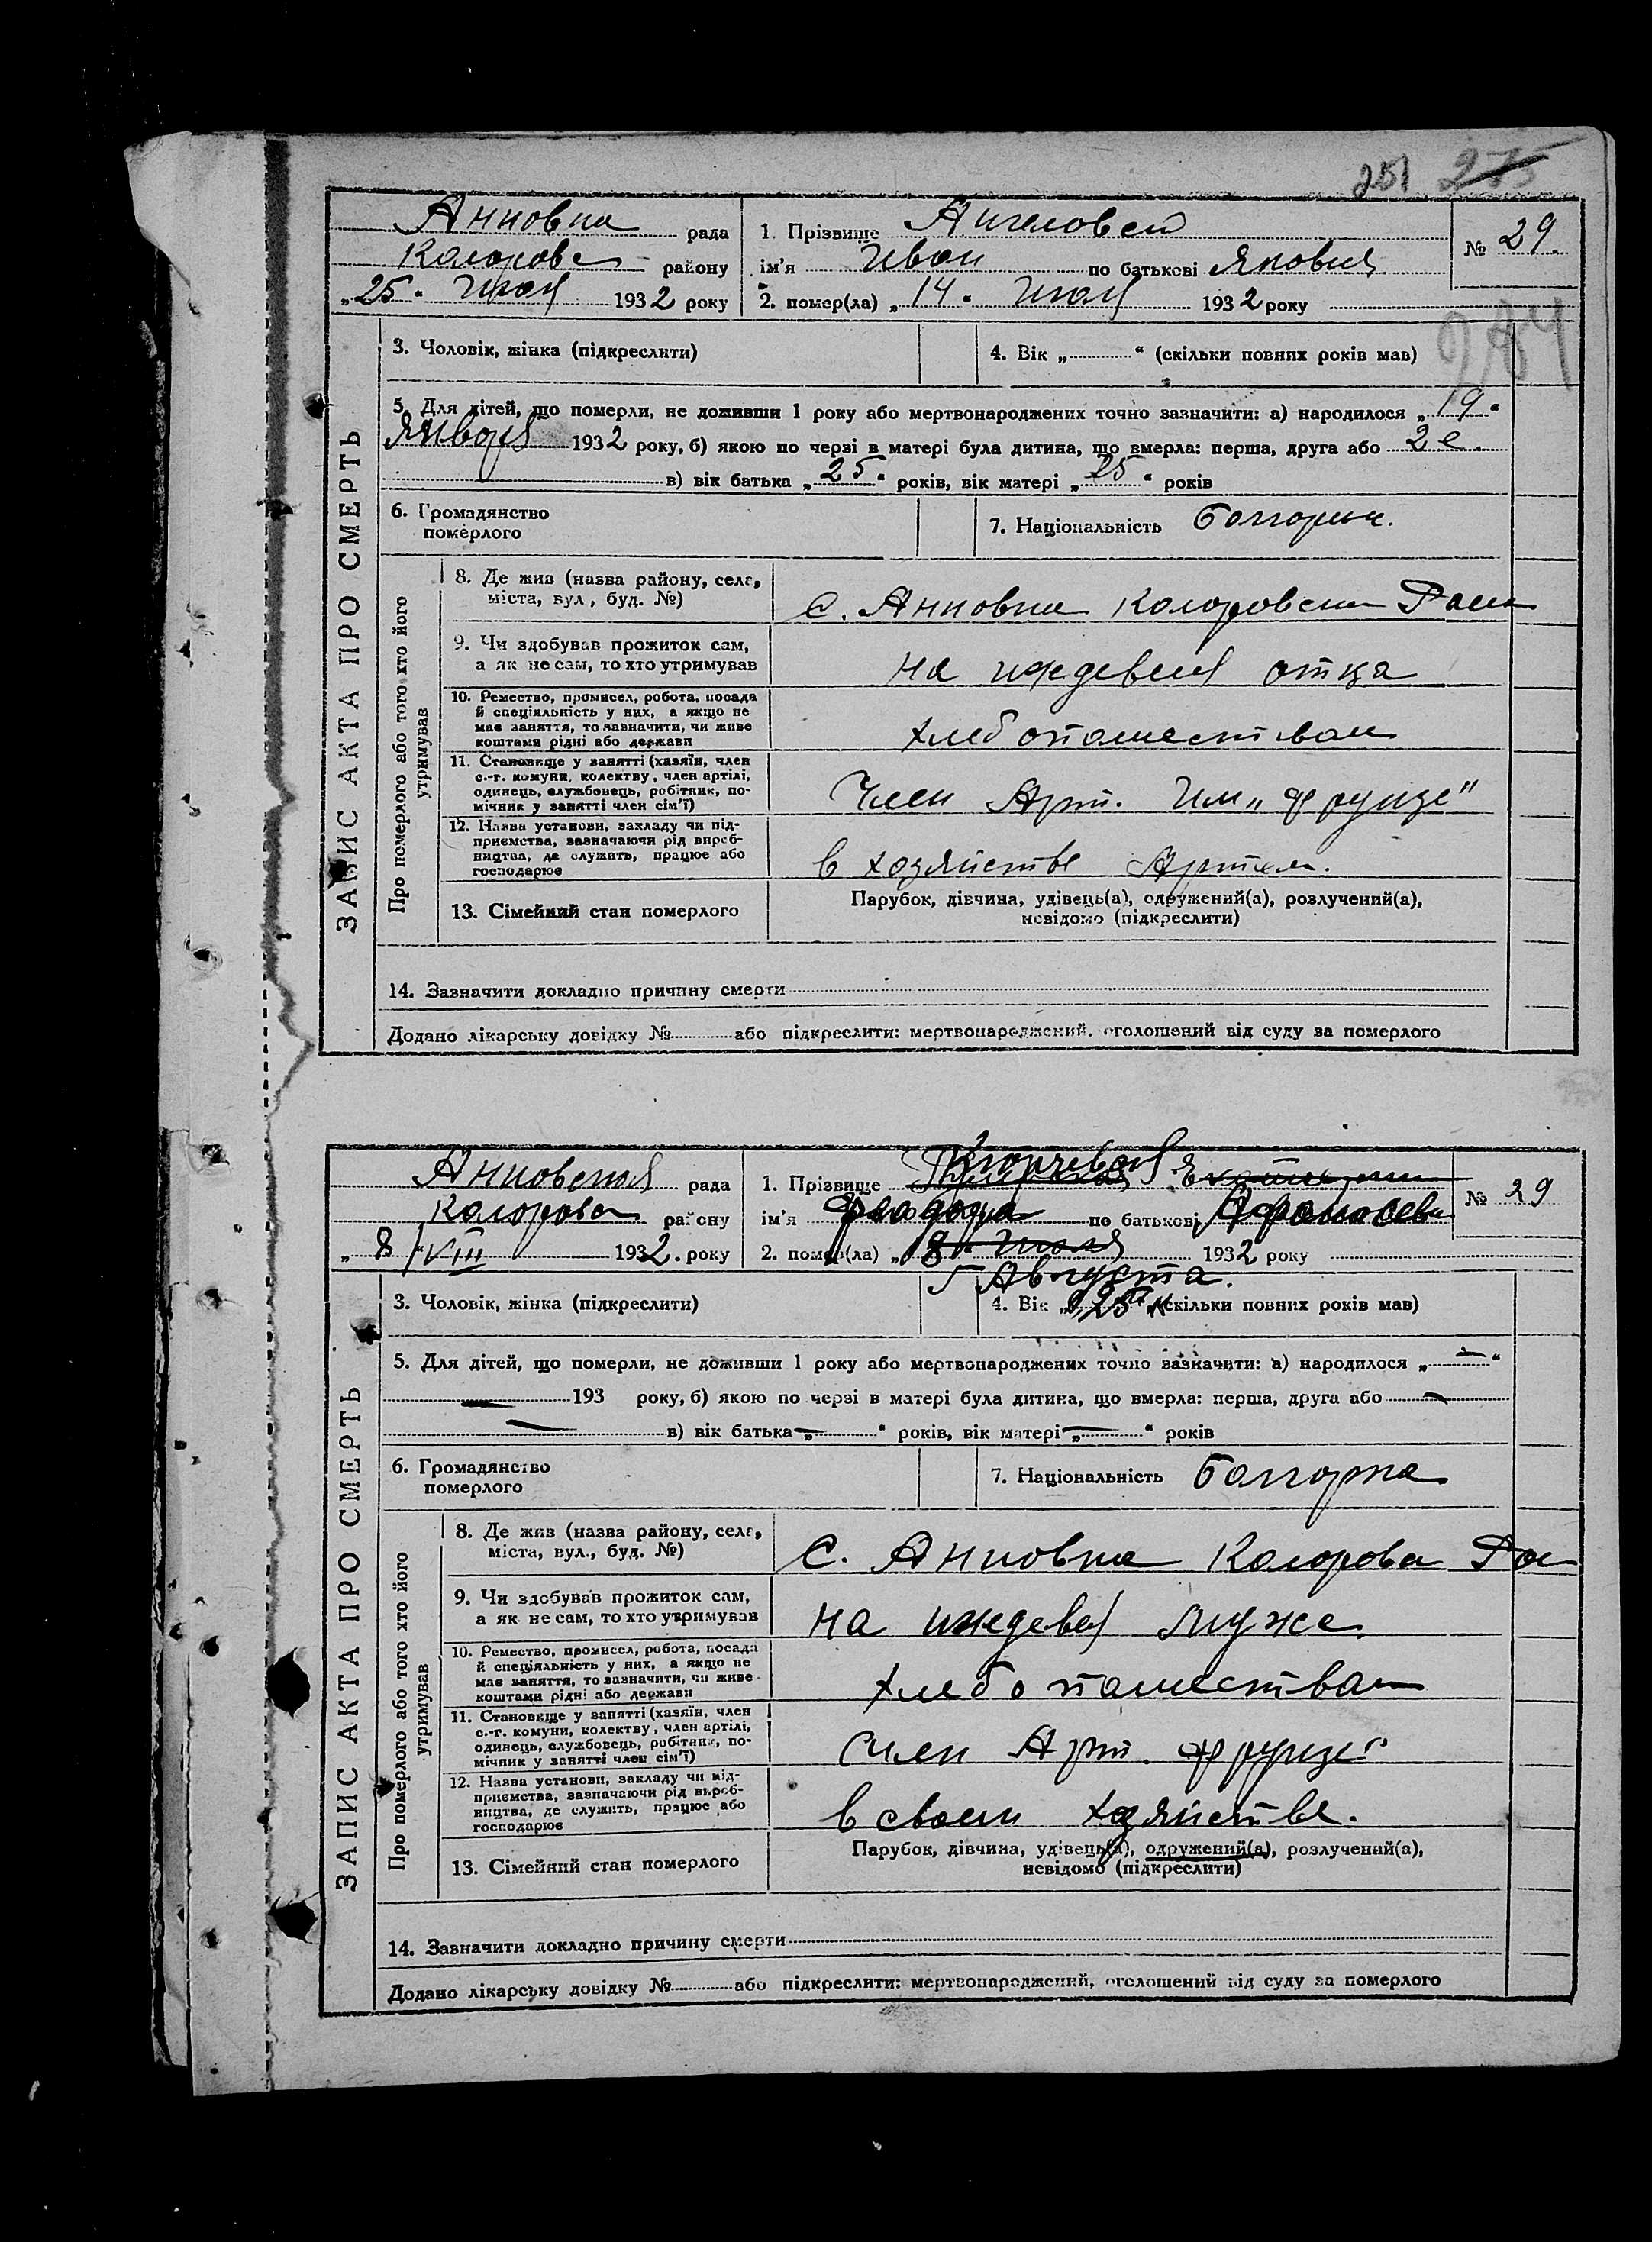 251 275
Анновка рада
Коларовс району
„25“ Июля 1932 року
1. Прізвище Ангеловски
ім'я Иван по батькові Яковия
2. помер(ла) „14“ Июля 1932 року
№ 29.
284
ЗАПИС АКТА ПРО СМЕРТЬ
3. Чоловік, жінка (підкреслити)
4. Вік „ “ (скільки повних років мав)
5. Для дітей, що померли, не доживши 1 року або мертвонароджених точно зазначити: а) народилося „19“
Января 1932 року, б) якою по черзі в матері була дитина, що вмерла: перша, друга або 2е.
в) вік батька „25“ років, вік матері „25“ років
6. Громадянство
померлого
7. Національність Болгорин.
Про померлого або того хто його
утримував
8. Де жив (назва району, села,
міста, вул, буд. №)
С. Анновка Коларовски Раен
9. Чи здобував прожиток сам,
а як не сам, то хто утримував
на иждевеня отца
10. Ремество, промисел, робота, посада
й спеціяльність у них, а якщо не
має заняття, то зазначити, чи живе
коштами рідні або держави
хлебопашествам
11. Становище у занятті (хазяїн, член
с.-г. комуни, колектву, член артілі,
одинець, службовець, робітник, по-
мічник у занятті член сім'ї)
Член Арт. Им „Фрунзе"
12. Назва установи, закладу чи під-
приємства, зазначаючи рід вироб-
ництва, де служить, працює або
господарює
в хозяйстве Артели.
13. Сімейний стан померлого
Парубок, дівчина, удівець(а), одружений(а), розлучений(а),
невідомо (підкреслити)
14. Зазначити докладно причину смерти
Додано лікарську довідку № або підкреслити: мертвонароджений, оголошений від суду за померлого
Анновская рада
Коларова району
„8“ VIII 1932. року
1. Прізвище
ім'я по батькові Афанасевн
2. помер(ла) „8“ Июля 1932 року
5 Августа.
№ 29
ЗАПИС АКТА ПРО СМЕРТЬ
3. Чоловік, жінка (підкреслити)
4. Вік „25“ (скільки повних років мав)
5. Для дітей, що померли, не доживши 1 року або мертвонароджених точно зазначити: а) народилося „—“
— 193 року, б) якою по черзі в матері була дитина, що вмерла: перша, друга або —
— в) вік батька „—“ років, вік матері „—“ років
6. Громадянство
померлого
7. Національність Болгорка
Про померлого або того хто його
утримував
8. Де жив (назва району, села,
міста, вул., буд. №)
С. Анновка Коларова Рае
9. Чи здобував прожиток сам,
а як не сам, то хто утримував
на иждевея мужа.
10. Ремество, промисел, робота, посада
й спеціяльність у них, а якщо не
має заняття, то зазначити, чи живе
коштами рідні або держави
хлебопашествам
11. Становище у занятті (хазяїн, член
с.-г. комуни, колектву, член артілі,
одинець, службовець, робітник, по-
мічник у занятті член сім'ї)
Член Арт. Фрунзе"
12. Назва установи, закладу чи під-
приємства, зазначаючи рід вироб-
ництва, де служить, працює або
господарює
в своем хозяйстве.
13. Сімейний стан померлого
Парубок, дівчина, удівець(а), одружений(а), розлучений(а),
невідомо (підкреслити)
14. Зазначити докладно причину смерти
Додано лікарську довідку № або підкреслити: мертвонароджений, оголошений від суду за померлого